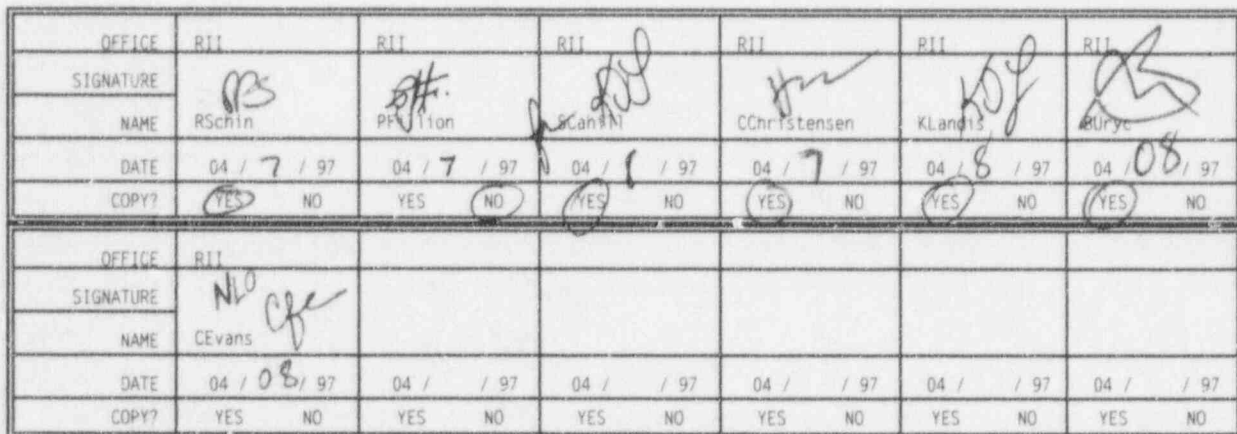 OFFICE RII RII RII RII RII RII
SIGNATURE
NAME RSchin PFillion SCahill CChristensen KLandis BUryc
DATE 04 / 7 / 97 04 / 7 / 97 04 / / 97 04 / 7 / 97 04 / 8 / 97 04 / 08 / 97
COPY? YES NO YES NO YES NO YES NO YES NO YES NO
OFFICE RII
SIGNATURE NLO
NAME CEvans
DATE 04 / 08 / 97 04 / / 97 04 / / 97 04 / / 97 04 / / 97 04 / / 97
COPY? YES NO YES NO YES NO YES NO YES NO YES NO